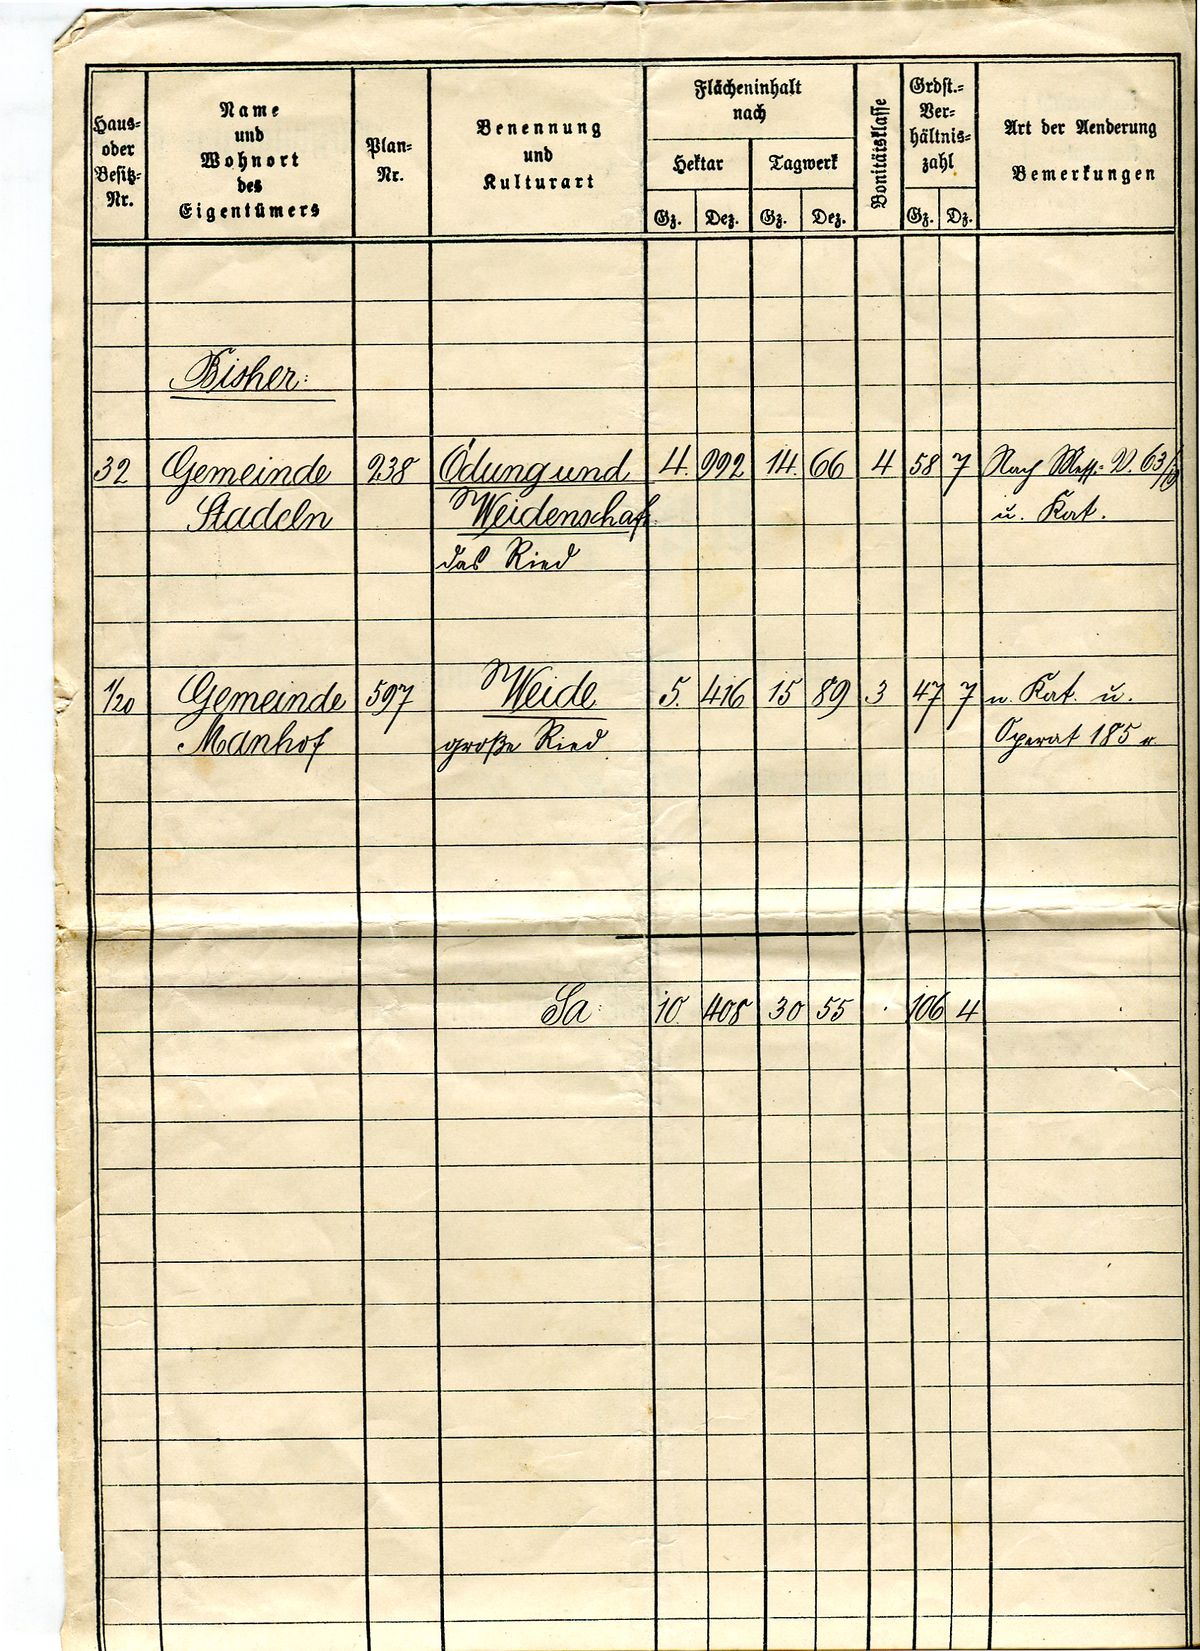 Haus- oder Besitz-Nr.
Name und Wohnort des Eigentümers
Plan-Nr.
Benennung und Kulturart
Flächeninhalt nach
Hektar
Tagwerk
Gz. Dez. Gz. Dez.
Bonitätsklasse
Grdst.-Ver-hältnis-zahl
Gz. Dz.
Art der Aenderung
Bemerkungen
Bisher:
32 Gemeinde 238 Ödung und 4. 992 14. 66 4 58 7 Nach Mess.-V. 63/19
Stadeln Weidenschaft u. Kat.
das Ried
1/20 Gemeinde 597 Weide 5. 416 15 89 3 47 7 n. Kat. u.
Manhof große Ried Operat 185
Sa: 10. 408 30 55 106 4